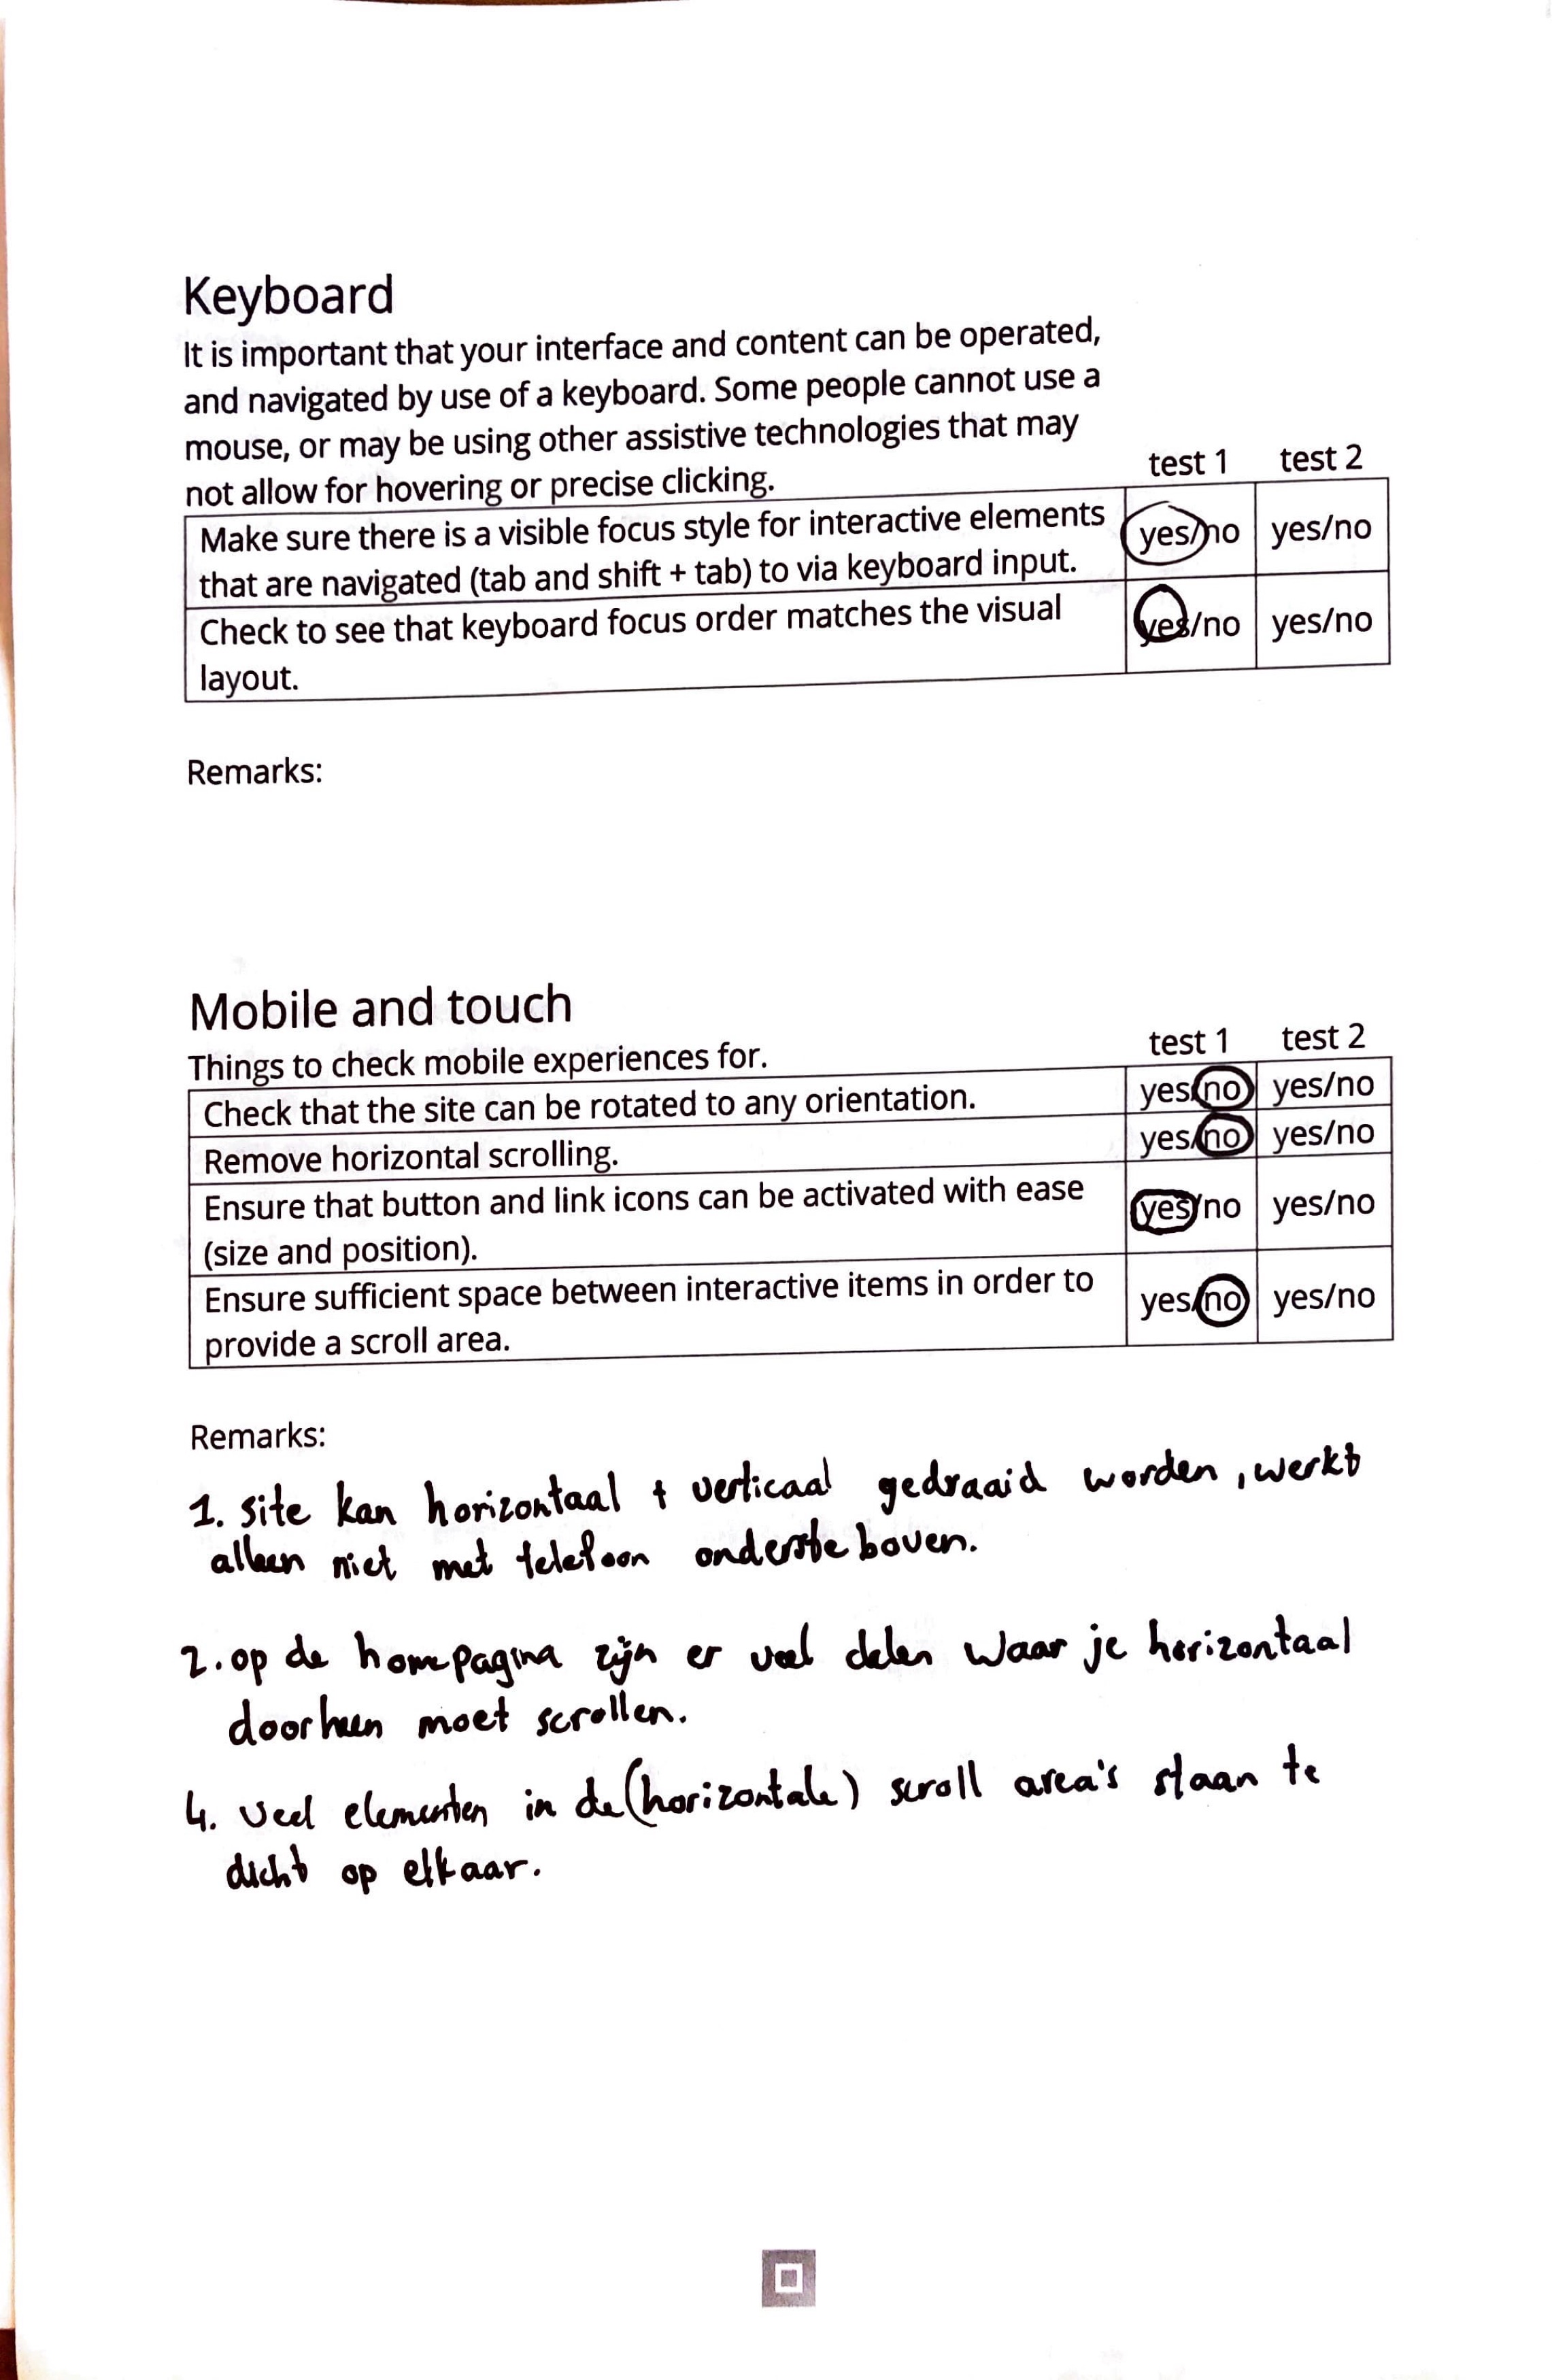 Keyboard
It is important that your interface and content can be operated,
and navigated by use of a keyboard. Some people cannot use a
mouse, or may be using other assistive technologies that may
not allow for hovering or precise clicking.
test 1 test 2
Make sure there is a visible focus style for interactive elements yes/no yes/no
that are navigated (tab and shift + tab) to via keyboard input.
Check to see that keyboard focus order matches the visual yes/no yes/no
layout.
Remarks:
Mobile and touch
Things to check mobile experiences for.
test 1 test 2
Check that the site can be rotated to any orientation. yes/no yes/no
Remove horizontal scrolling. yes/no yes/no
Ensure that button and link icons can be activated with ease yes/no yes/no
(size and position).
Ensure sufficient space between interactive items in order to yes/no yes/no
provide a scroll area.
Remarks:
1. site kan horizontaal + verticaal gedraaid worden, werkt
alleen niet met telefoon ondersteboven.
2. op de homepagina zijn er veel delen waar je horizontaal
doorheen moet scrollen.
4. veel elementen in de (horizontale) scroll area's staan te
dicht op elkaar.